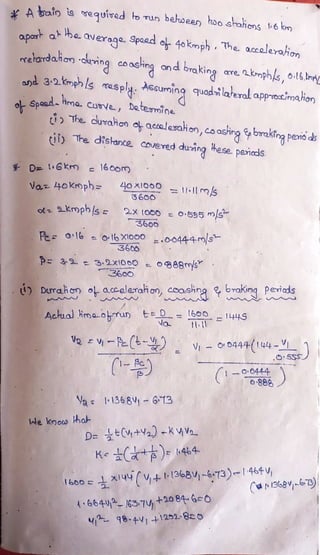 * A train is required to run between two stations 1.6 km
apart at the average Speed of 40kmph. The acceleration
retardation during coasting and braking are 2kmph/s, 0.16
and 3.2kmph/s resply. Assuming quadrilateral approximation
of Speed-time curve, Determine
(i) The duration of acceleration, coasting & braking periods
(ii) The distance covered during these periods.
* D = 1.6km = 1600m
Va = 40kmph = 40x1000/3600 = 11.11 m/s
α = 2kmph/s = 2x1000/3600 = 0.555 m/s²
βc = 0.16 = 0.16x1000/3600 = 0.0444m/s²
β = 3.2 = 3.2x1000/3600 = 0.888m/s²
(i) Duration of acceleration, coasting & braking Periods
Actual time of run t = D/Va = 1600/11.11 = 144S
V2 = V1 - βc(t - V1/α) / (1 - βc/β) = V1 - 0.0444(144 - V1/0.555) / (1 - 0.0444/0.888)
V2 = 1.1368V1 - 6.73
We know that
D = 1/2 t(V1+V2) - K V1V2
K = 1/2(1/α + 1/β) = 1.464
1600 = 1/2 x144 (V1 + 1.1368V1 - 6.73) - 1.464V1
(1.1368V1 - 6.73)
1.664V1² - 163.7V1 + 2084.6 = 0
V1² - 98.4V1 + 1252.8 = 0